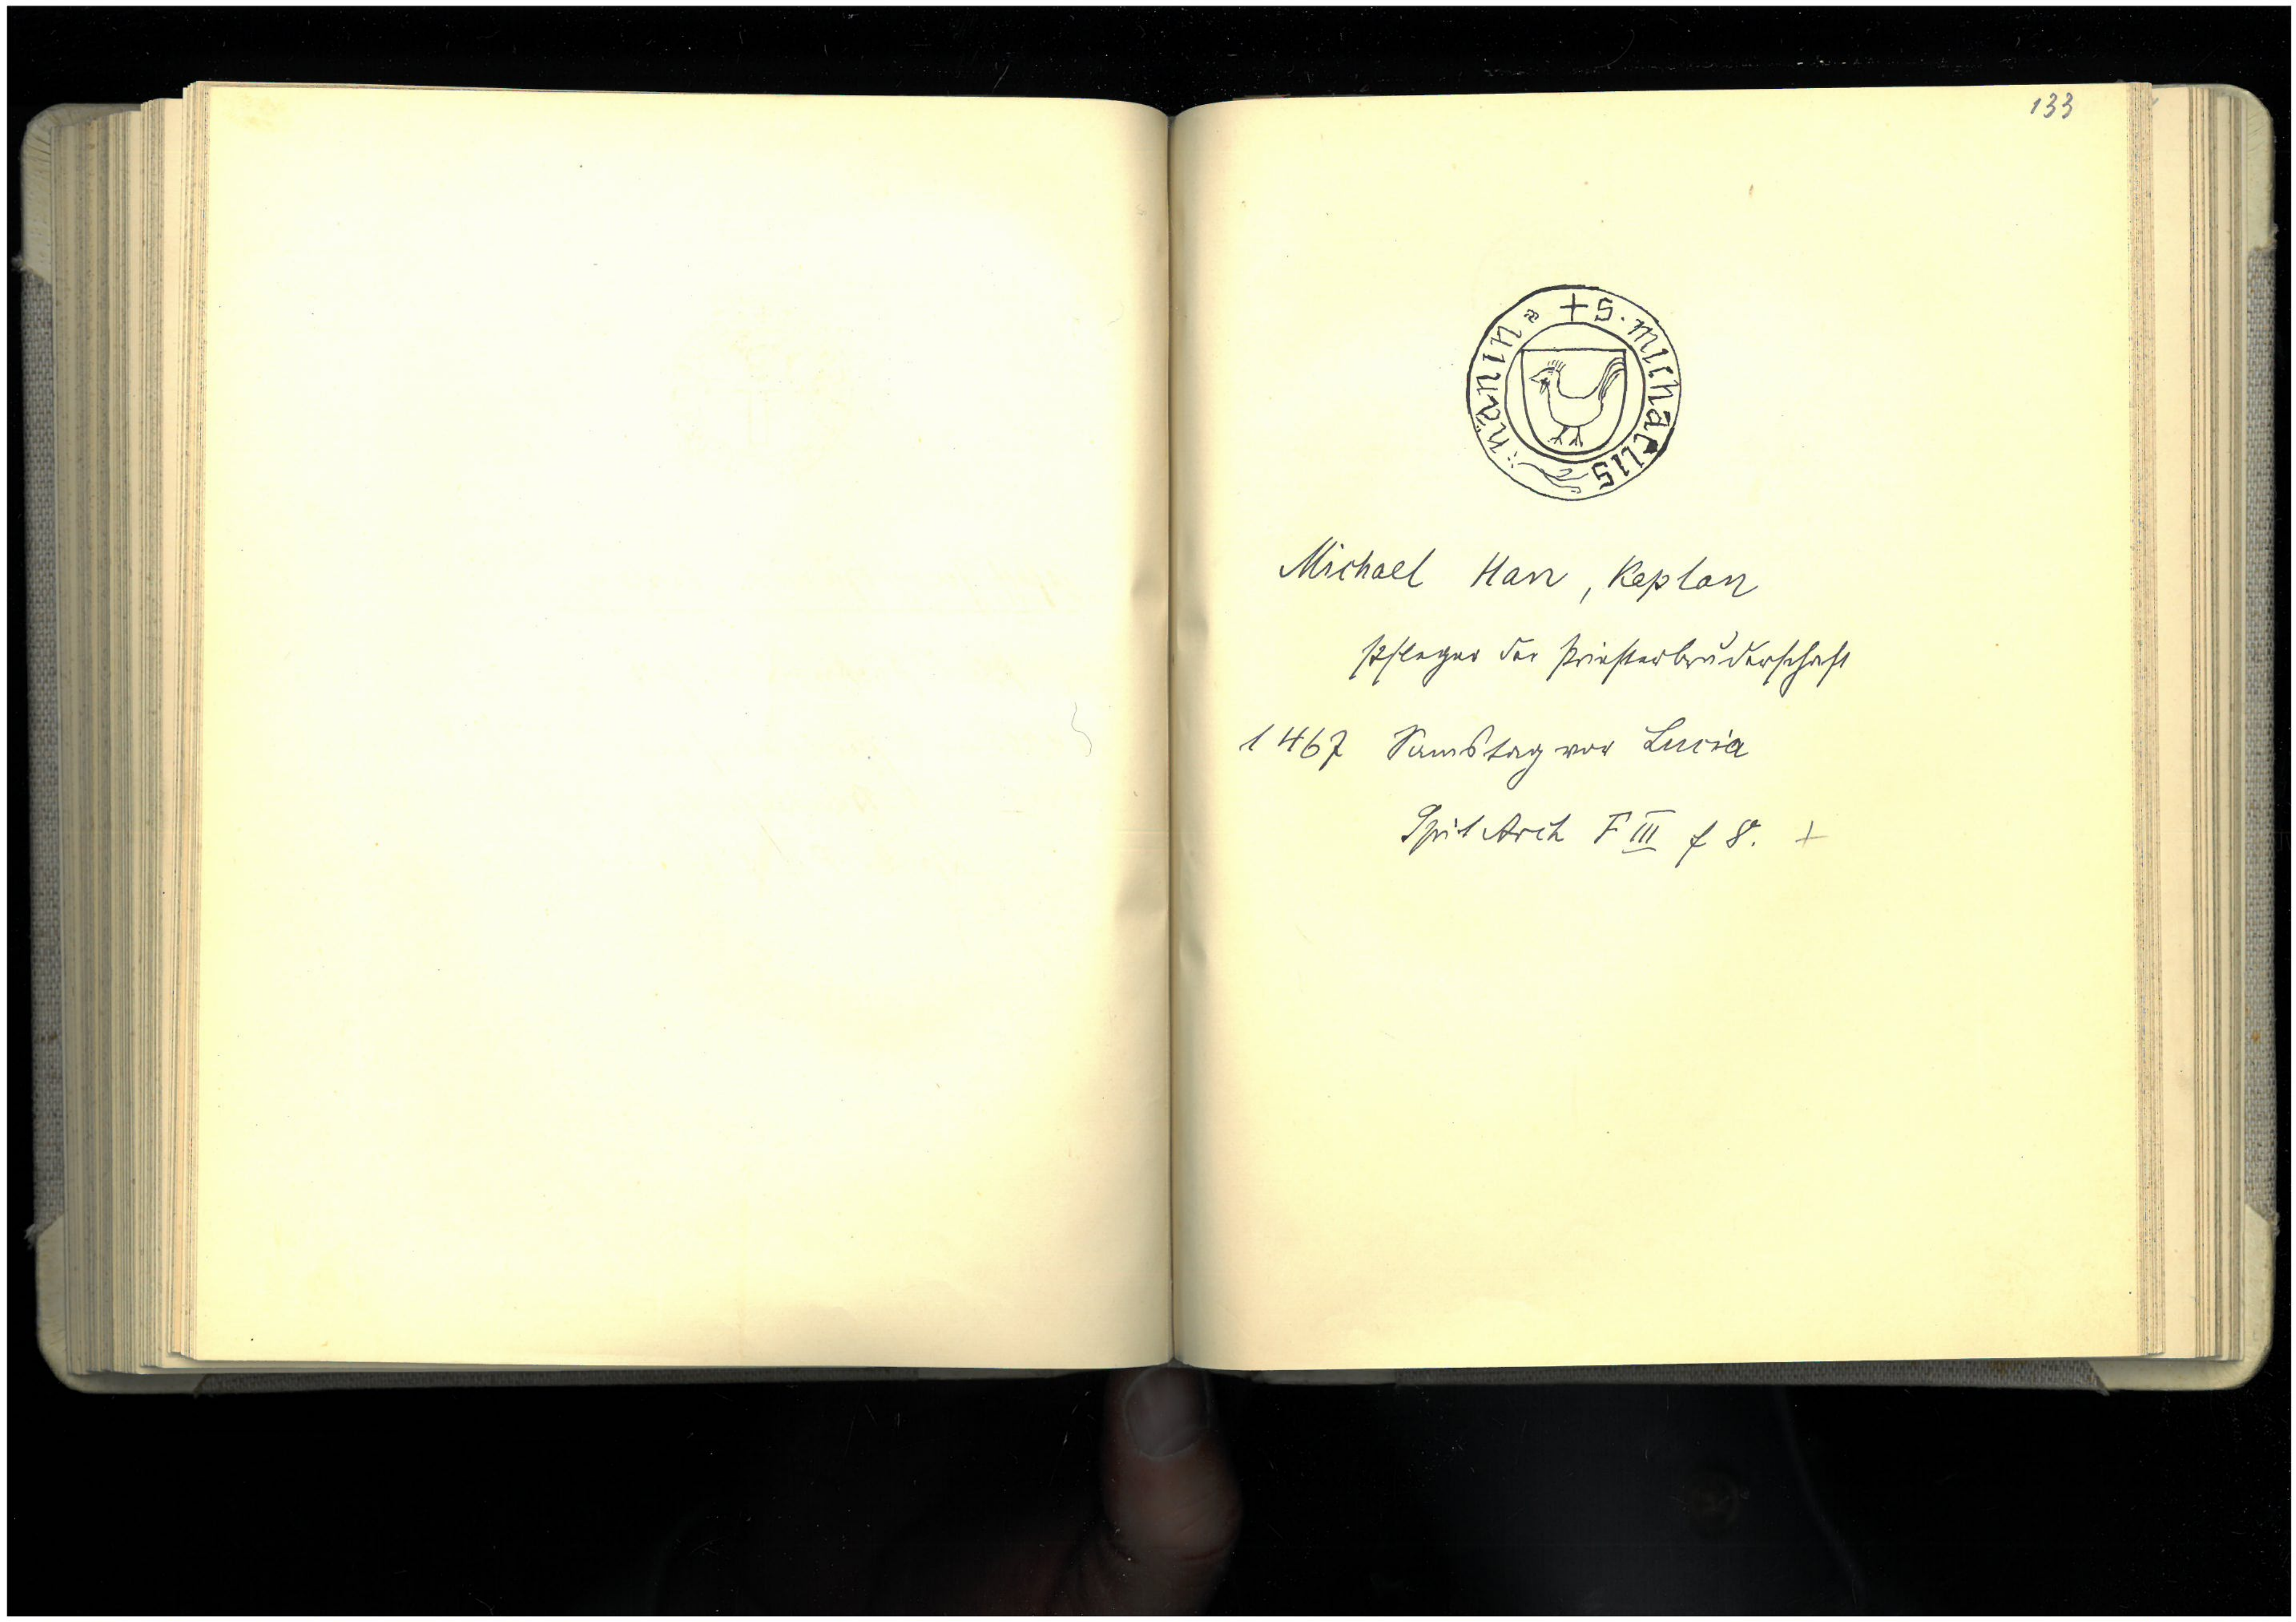 133
+ S · michaelis
hänin
Michael Han, Kaplan
Pfleger der Priesterbruderschaft
1467 Samstag vor Lucia
Spit Arch F III f 8. +